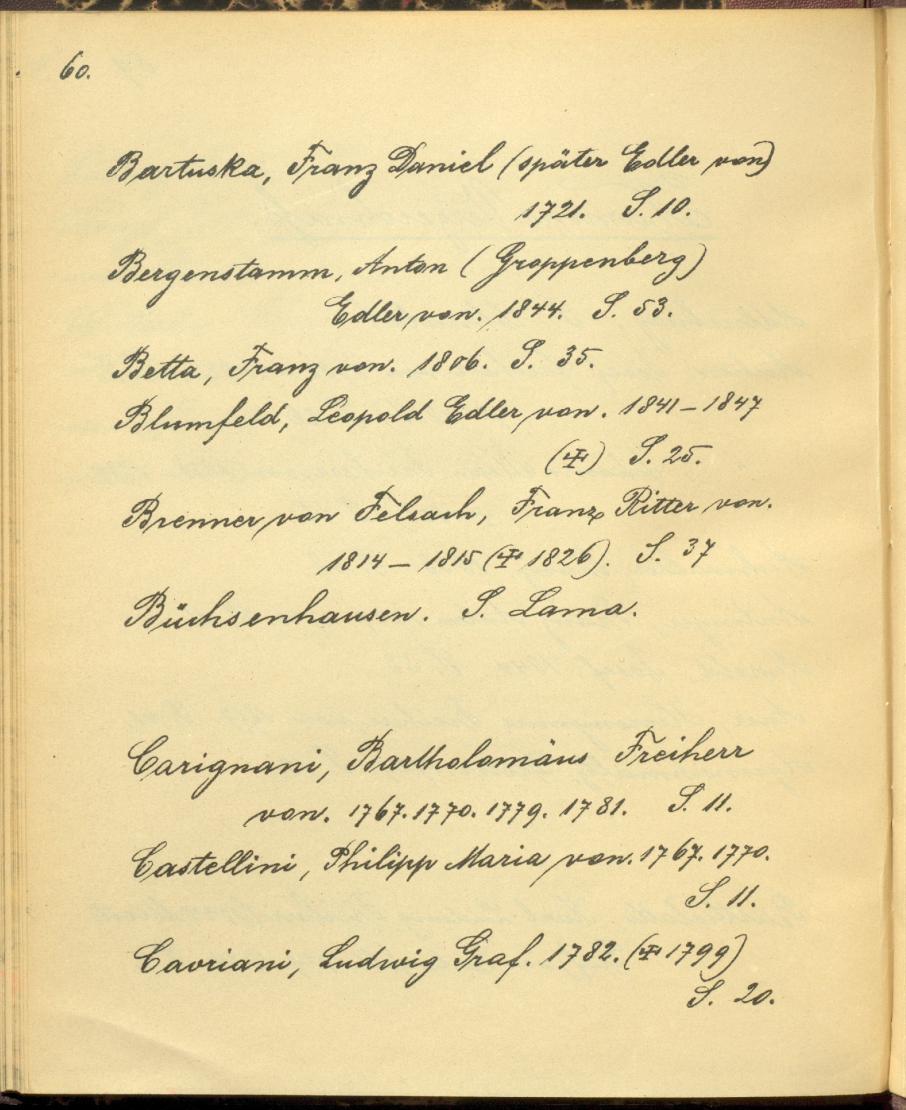 60.
Bartuska, Franz Daniel (später Edler von)
1721. S. 10.
Bergenstamm, Anton (Groppenberg)
Edler von. 1844. S. 53.
Betta, Franz von. 1806. S. 35.
Blumfeld, Leopold Edler von. 1841–1847
(✠) S. 25.
Brenner von Felsach, Franz Ritter von.
1814–1815 (✠ 1826). S. 37
Büchsenhausen. S. Lama.
Carignani, Bartholomäus Freiherr
von. 1767. 1770. 1779. 1781. S. 11.
Castellini, Philipp Maria von. 1767. 1770.
S. 11.
Cavriani, Ludwig Graf. 1782. (✠ 1799)
S. 20.